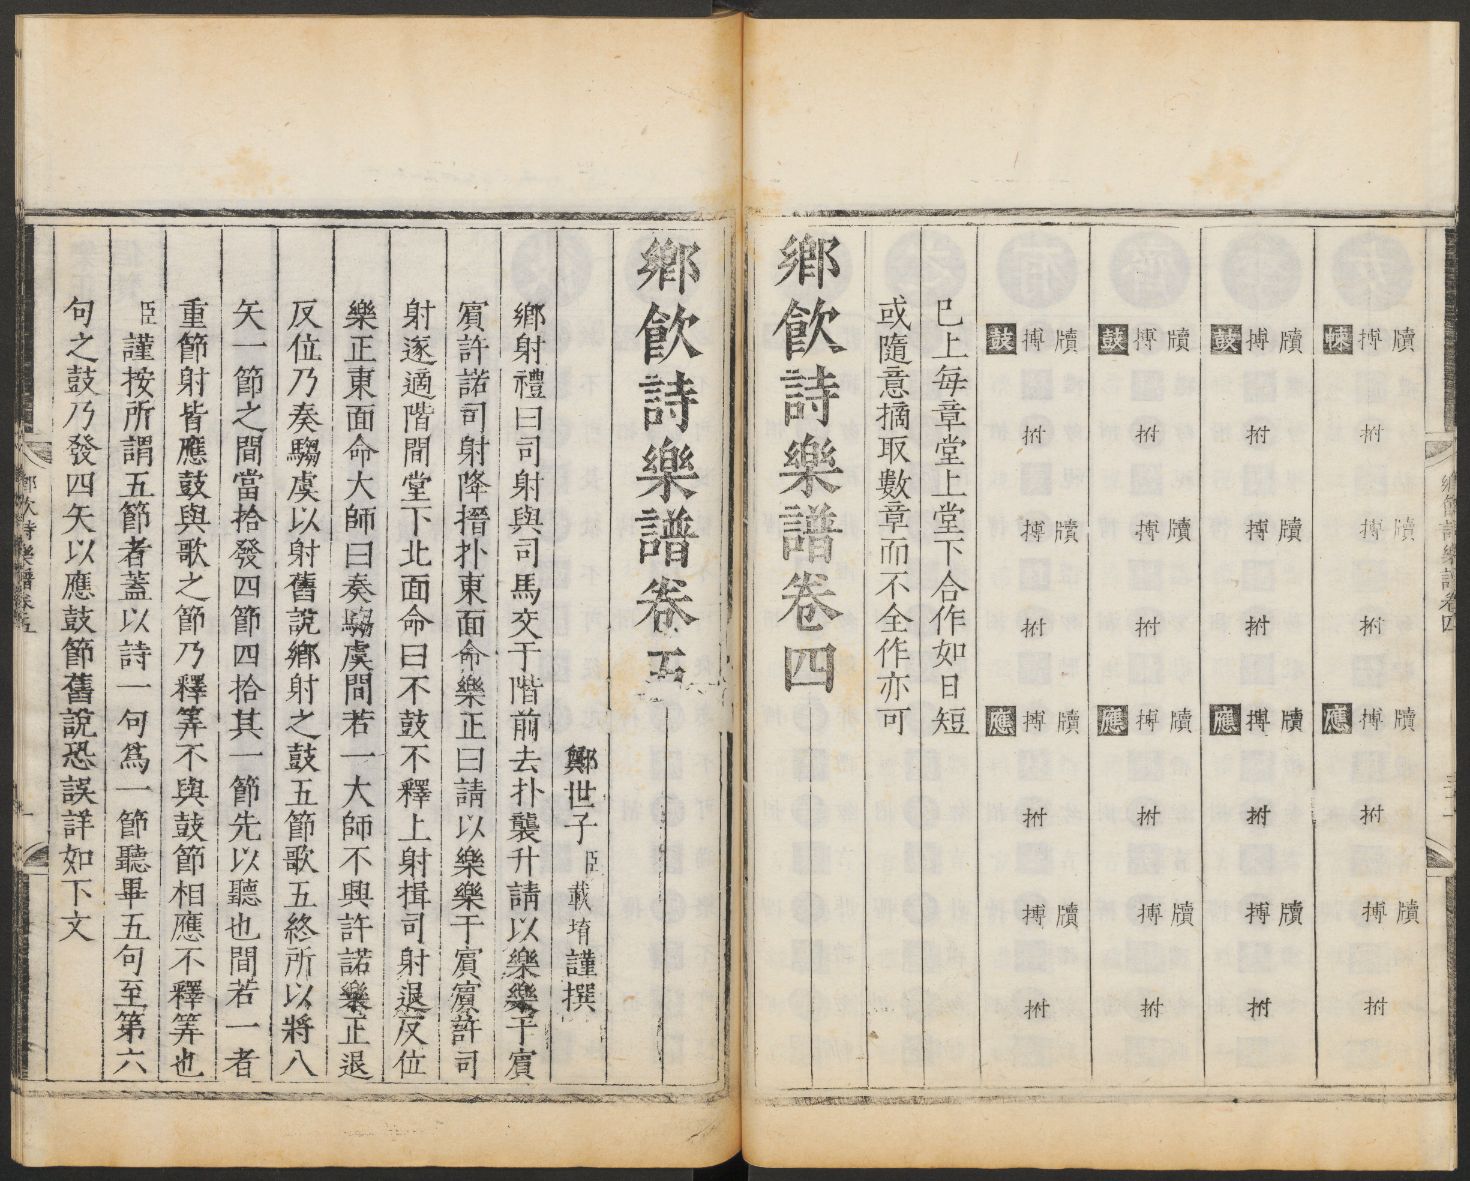 鄉飲詩樂譜卷四
牘 牘 牘 牘
搏 拊 搏 拊 搏 拊 搏 拊
朄 應
牘 牘 牘 牘
搏 拊 搏 拊 搏 拊 搏 拊
鼓 應
牘 牘 牘 牘
搏 拊 搏 拊 搏 拊 搏 拊
鼓 應
牘 牘 牘 牘
搏 拊 搏 拊 搏 拊 搏 拊
鼓 應
已上每章堂上堂下合作如日短
或隨意摘取數章而不全作亦可
鄉飲詩樂譜卷四
鄉飲詩樂譜卷五
鄭世子臣載堉謹撰
鄉射禮曰司射與司馬交于階前去扑襲升請以樂樂于賔
賔許諾司射降搢扑東面命樂正曰請以樂樂于賔賔許司
射遂適階間堂下北面命曰不鼓不釋上射揖司射退反位
樂正東面命大師曰奏騶虞間若一大師不興許諾樂正退
反位乃奏騶虞以射舊說鄉射之鼓五節歌五終所以將八
矢一節之間當拾發四節四拾其一節先以聽也間若一者
重節射皆應鼓與歌之節乃釋筭不與鼓節相應不釋筭也
臣謹按所謂五節者蓋以詩一句爲一節聽畢五句至第六
句之鼓乃發四矢以應鼓節舊說恐誤詳如下文
鄉飲詩樂譜卷五
一